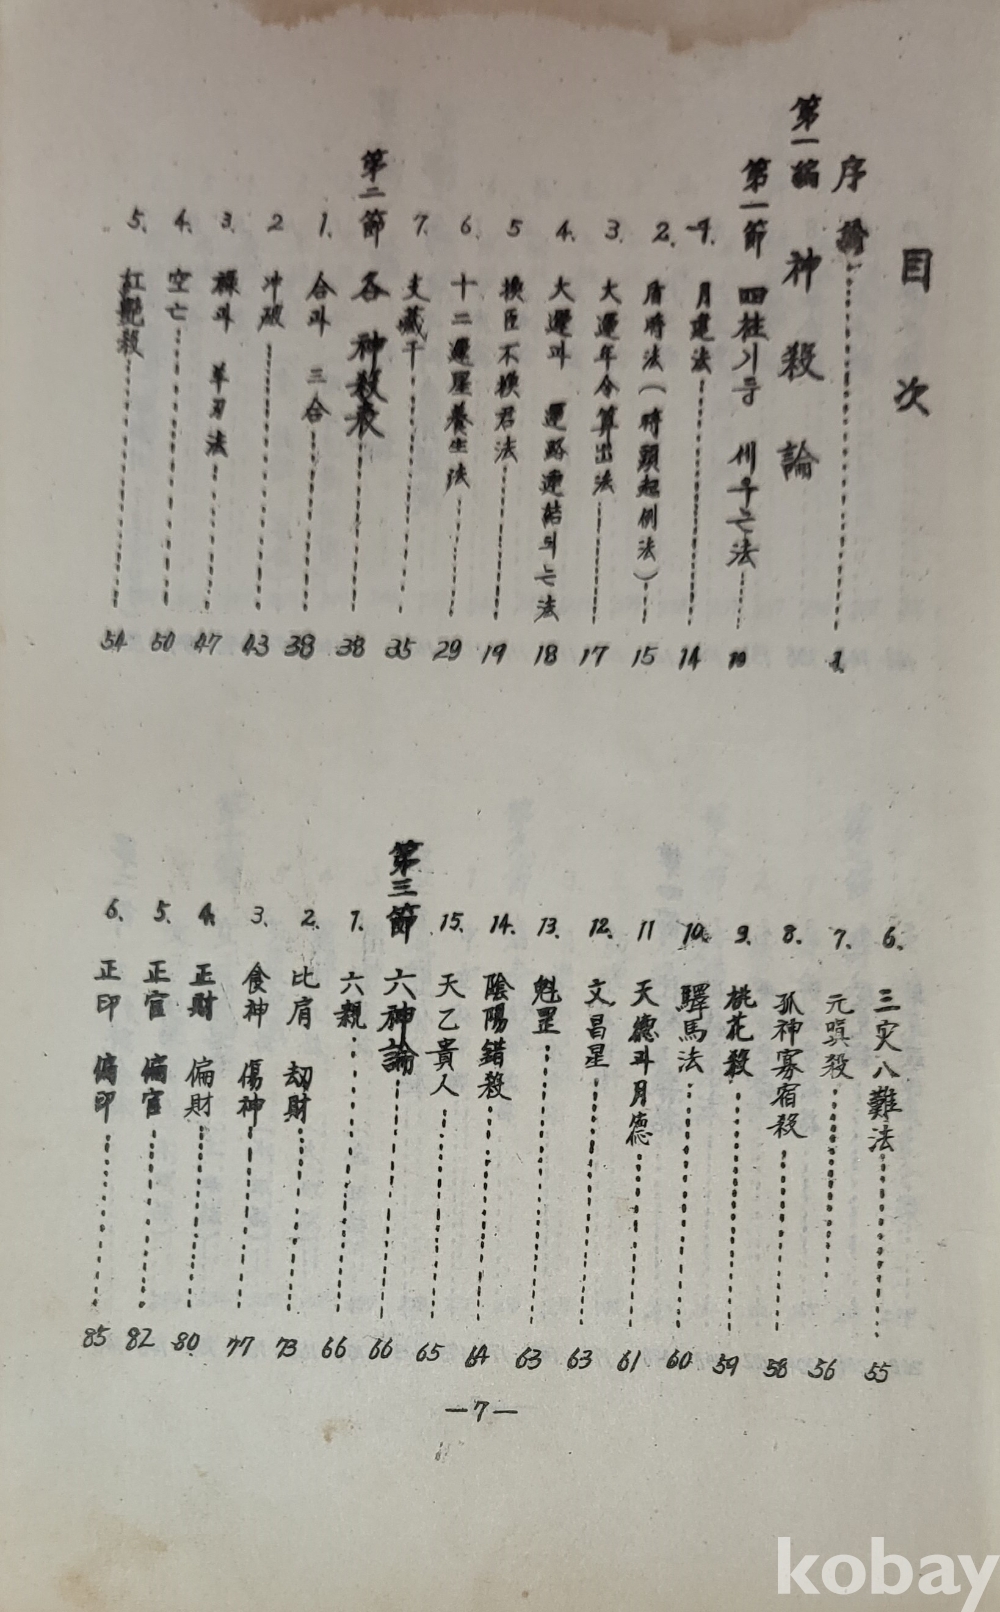 目次
序論 1
第一編 神殺論
第一節 四柱기둥 세우는法 10
1. 月建法 14
2. 盾時法(時頭起例法) 15
3. 大運年令算出法 17
4. 大運과 運路連結되는法 18
5 換臣不換君法 19
6. 十二運星養生法 29
7. 支藏干 35
第二節 各神殺表 38
1. 合과 三合 38
2 冲破 43
3. 祿과 羊刃法 47
4. 空亡 50
5. 紅艶殺 54
6. 三灾八難法 55
7. 元嗔殺 56
8. 孤神寡宿殺 58
9. 桃花殺 59
10. 驛馬法 60
11 天德과月德 61
12. 文昌星 63
13. 魁罡 63
14. 陰陽錯殺 64
15. 天乙貴人 65
第三節 六神論 66
1. 六親 66
2. 比肩 劫財 73
3. 食神 傷神 77
4. 正財 偏財 80
5. 正官 偏官 82
6. 正印 偏印 85
—7—
kobay